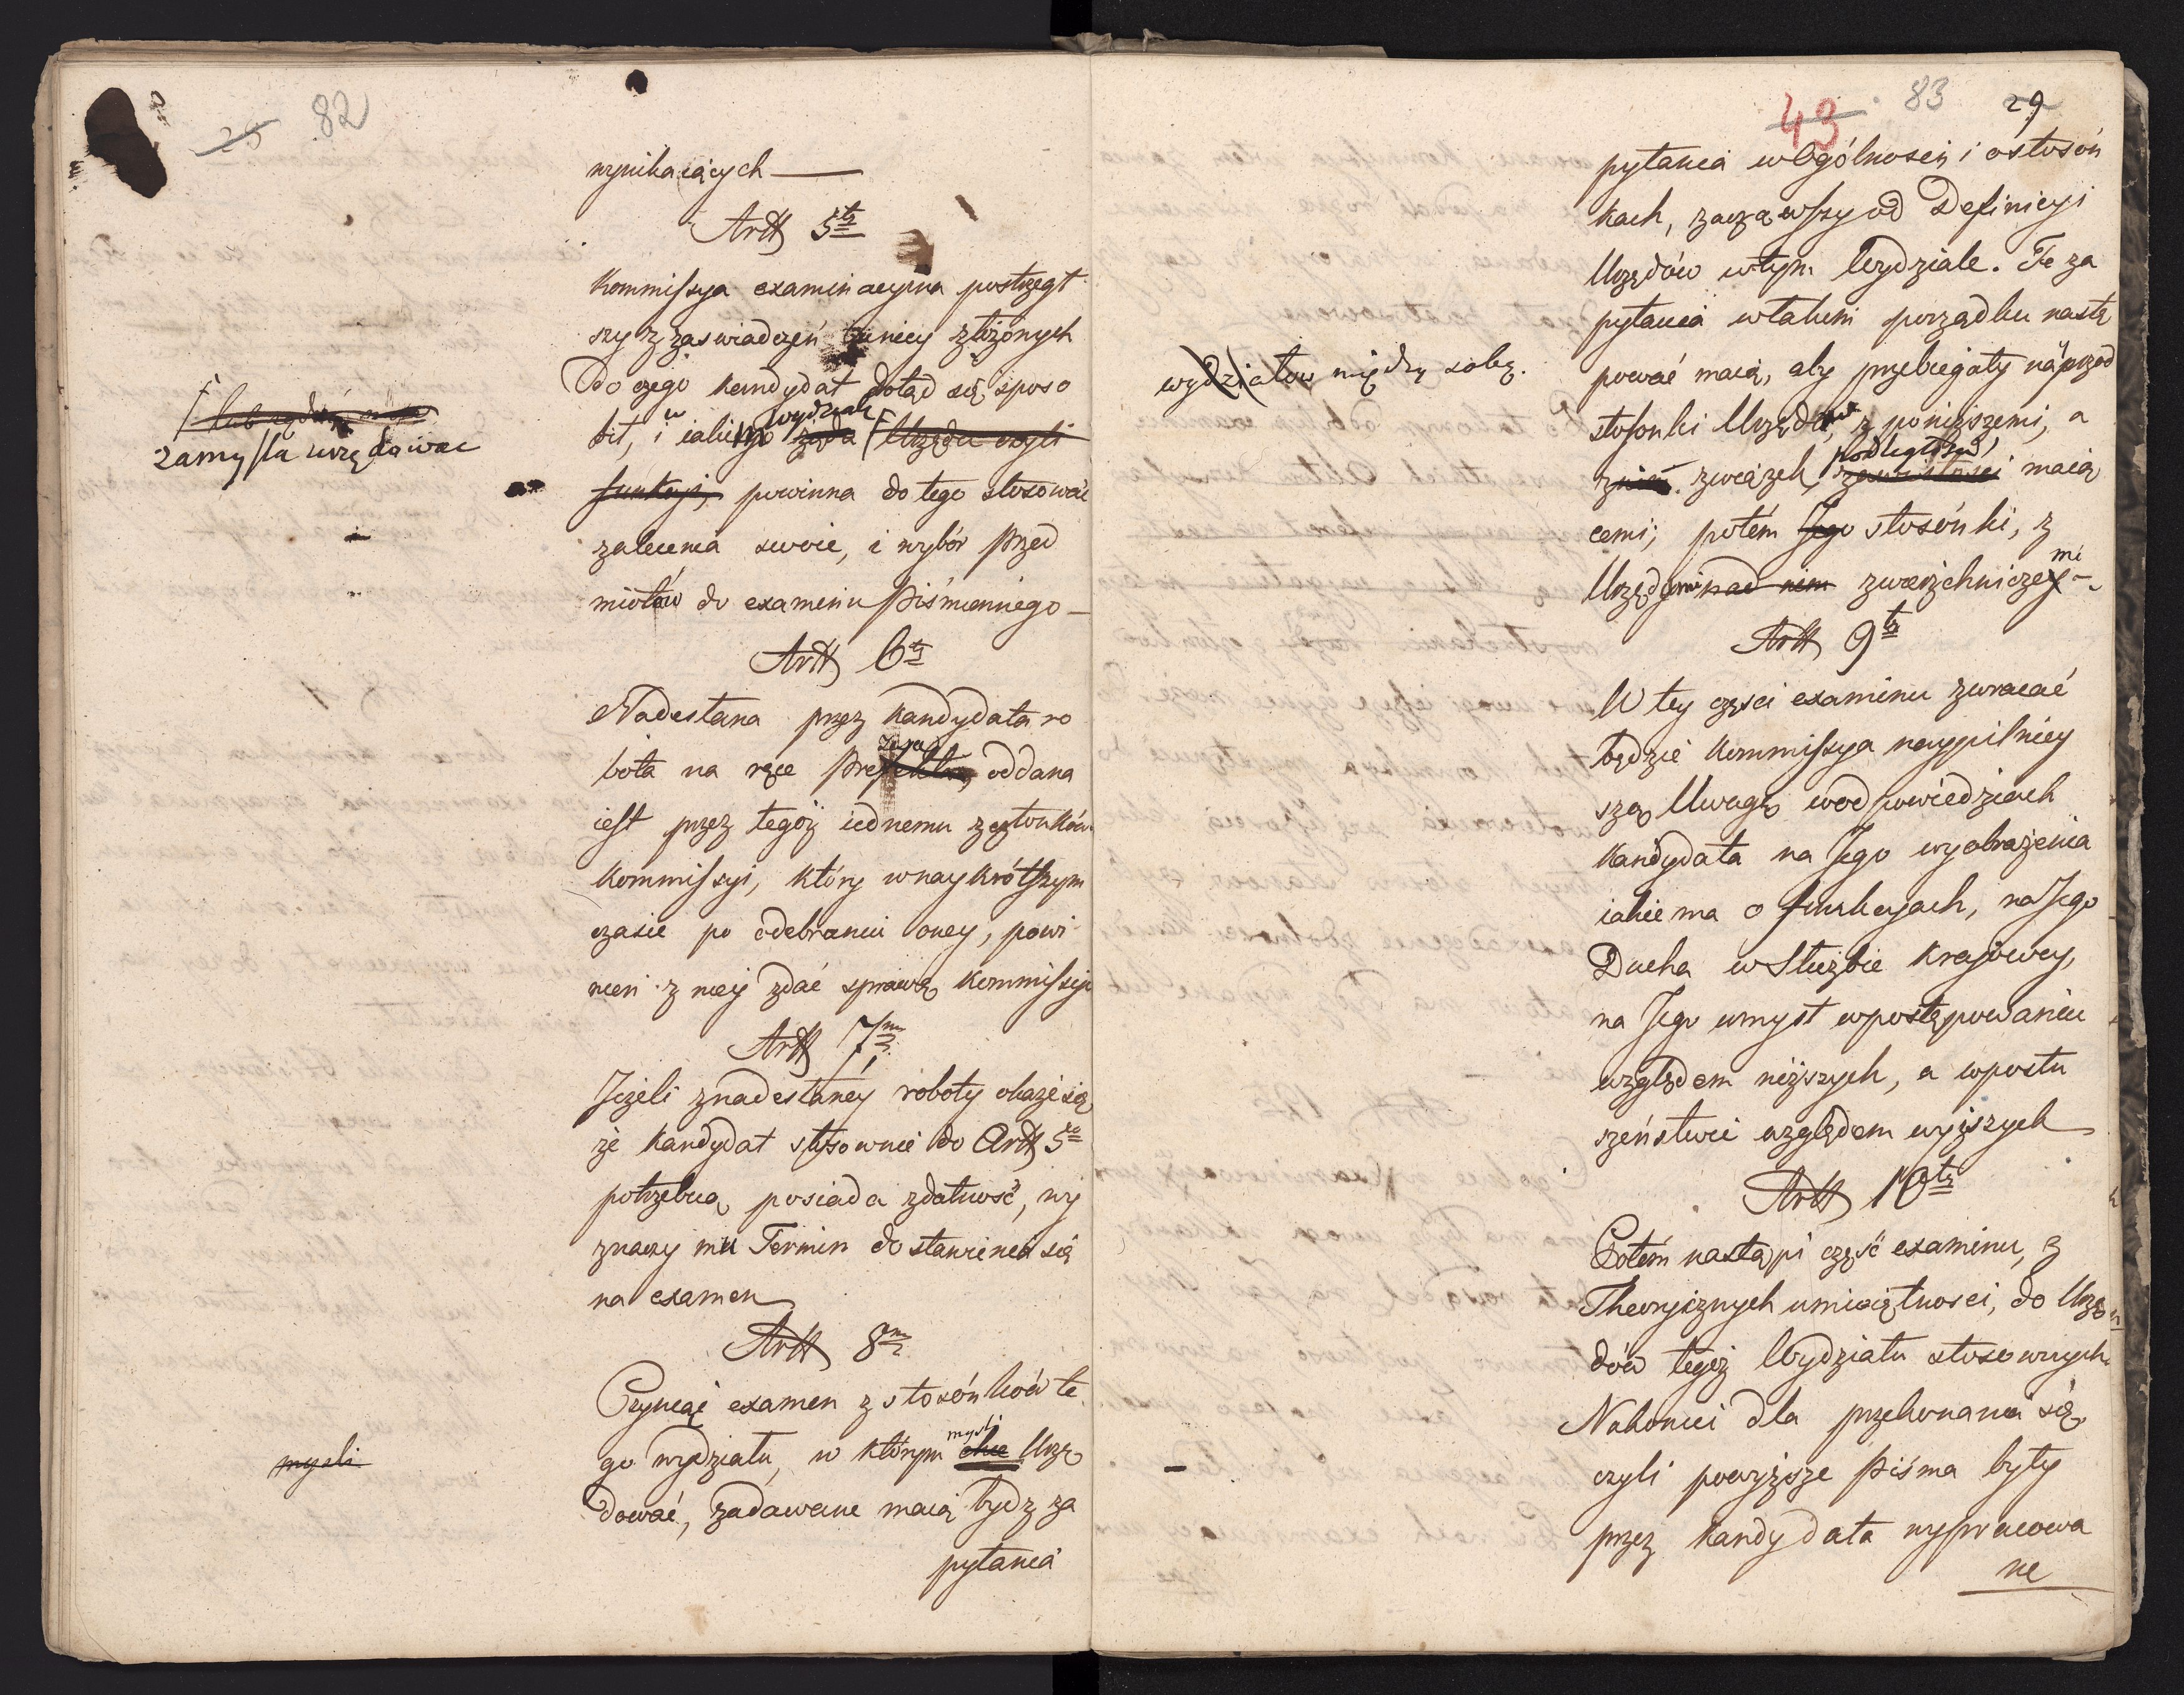 25 82
wynikaiących
Artt 5ty
Kommissya examinacyina postrzegł
szy z zaswiadczeń iuniey złożonych
Do czego kandydat dotąd się sposo
bił, i w iakiego wydziale żąda Urzędu czyli
funkcyi, powinna do tego stosować
zalecenia swoie, i wybór Przed
miotów do examinu Piśmiennego
zamysla urzędować
Artt 6ty
Nadesłana przez kandydata ro
bota na ręce Prefekta, oddana
iest przez tegoż iednemu z członków
Kommissyi, który w naykrótszym
czasie po odebraniu oney, powi
nien z niey zdać sprawę Kommissyi
Artt 7my
Jeżeli z nadesłaney roboty okaże się
że kandydat stosownie do Artt 5to
potrzebną posiada zdatność, wy
znaczy mu Termin do stawienia się
na examen
Artt 8my
Czyniąc examen z stosónków te
go wydziału, w którym chce mysli Urzę
dować, zadawane maią bydz za
mysli
pytania
43 83 29
pytania w Ogólnosci i o stosón
kach, zacząwszy od Definicyi
Urzędów w tym Wydziale. Te za
pytania w takim porządku nastę
pować maią, aby przebiegały náprzód
wydziałow między sobą.
stosonki Urzędów, z poniższemi, a
z nim związek, podległość zawisłosci maią
cemi, potém Jego stosónki, z
Urzędami nad nim zwierzchniczemi
Artt 9ty
W tey części examinu zwracać
będzie Kommissya naypilniey
szą Uwagę w odpowiedziach
Kandydata na Jego wyobrażenia
iakie ma o funkcyach, na Jego
Ducha w Służbie Krajowey,
na Jego umysł w postępowaniu
względem niższych, a w posłu
szeństwie względem wyższych
Artt 10ty
Potém nastąpi część examinu, z
Theoryicznych umieiętnosci, do Urzę
dów tegoż Wydziału stosownych
Nakoniec dla przekonania się,
czyli powyższe Pisma były
przez kandydata wypracowa
ne